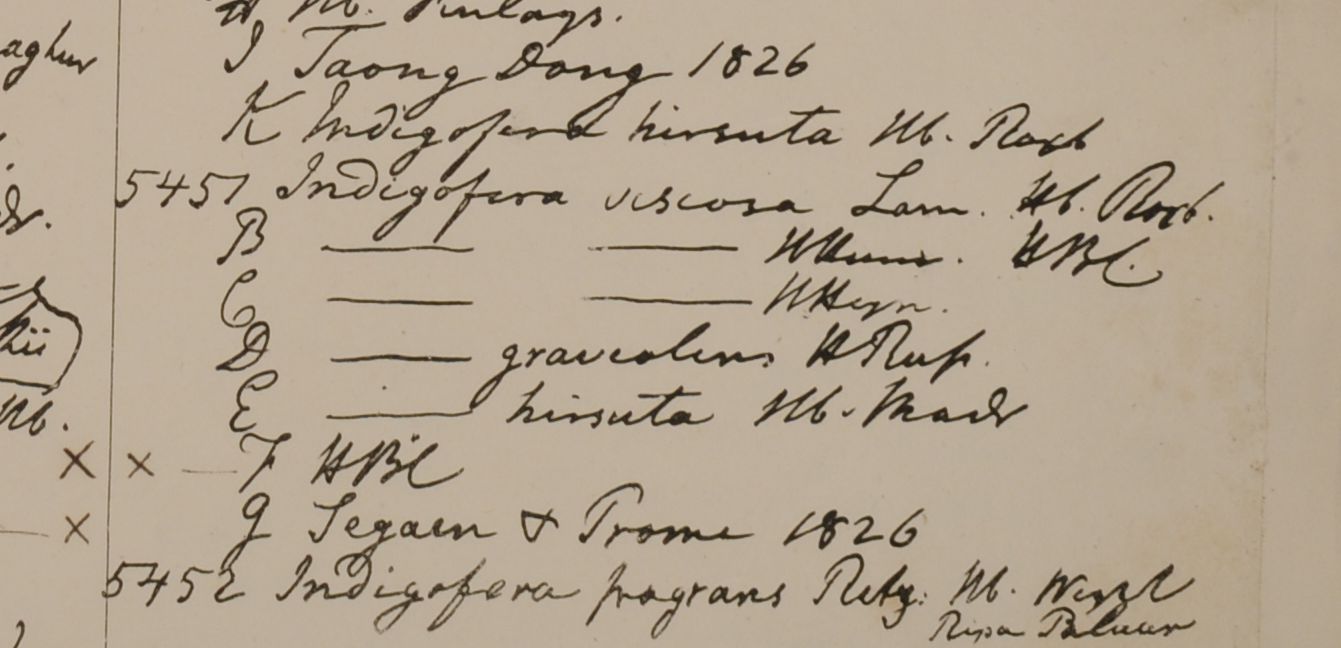 H Hb. Finlays.
I Taong Dong 1826
K Indigofera hirsuta Hb. Roxb
5451 Indigofera viscosa Lam. Hb. Roxb.
B — — HHam. HBC.
C — — HHeyn.
D — graveolens H Rus.
E — hirsuta Hb. Madr
× × — F HBC
× G Segaen & Prome 1826
5452 Indigofera fragrans Retz: Hb. Wight